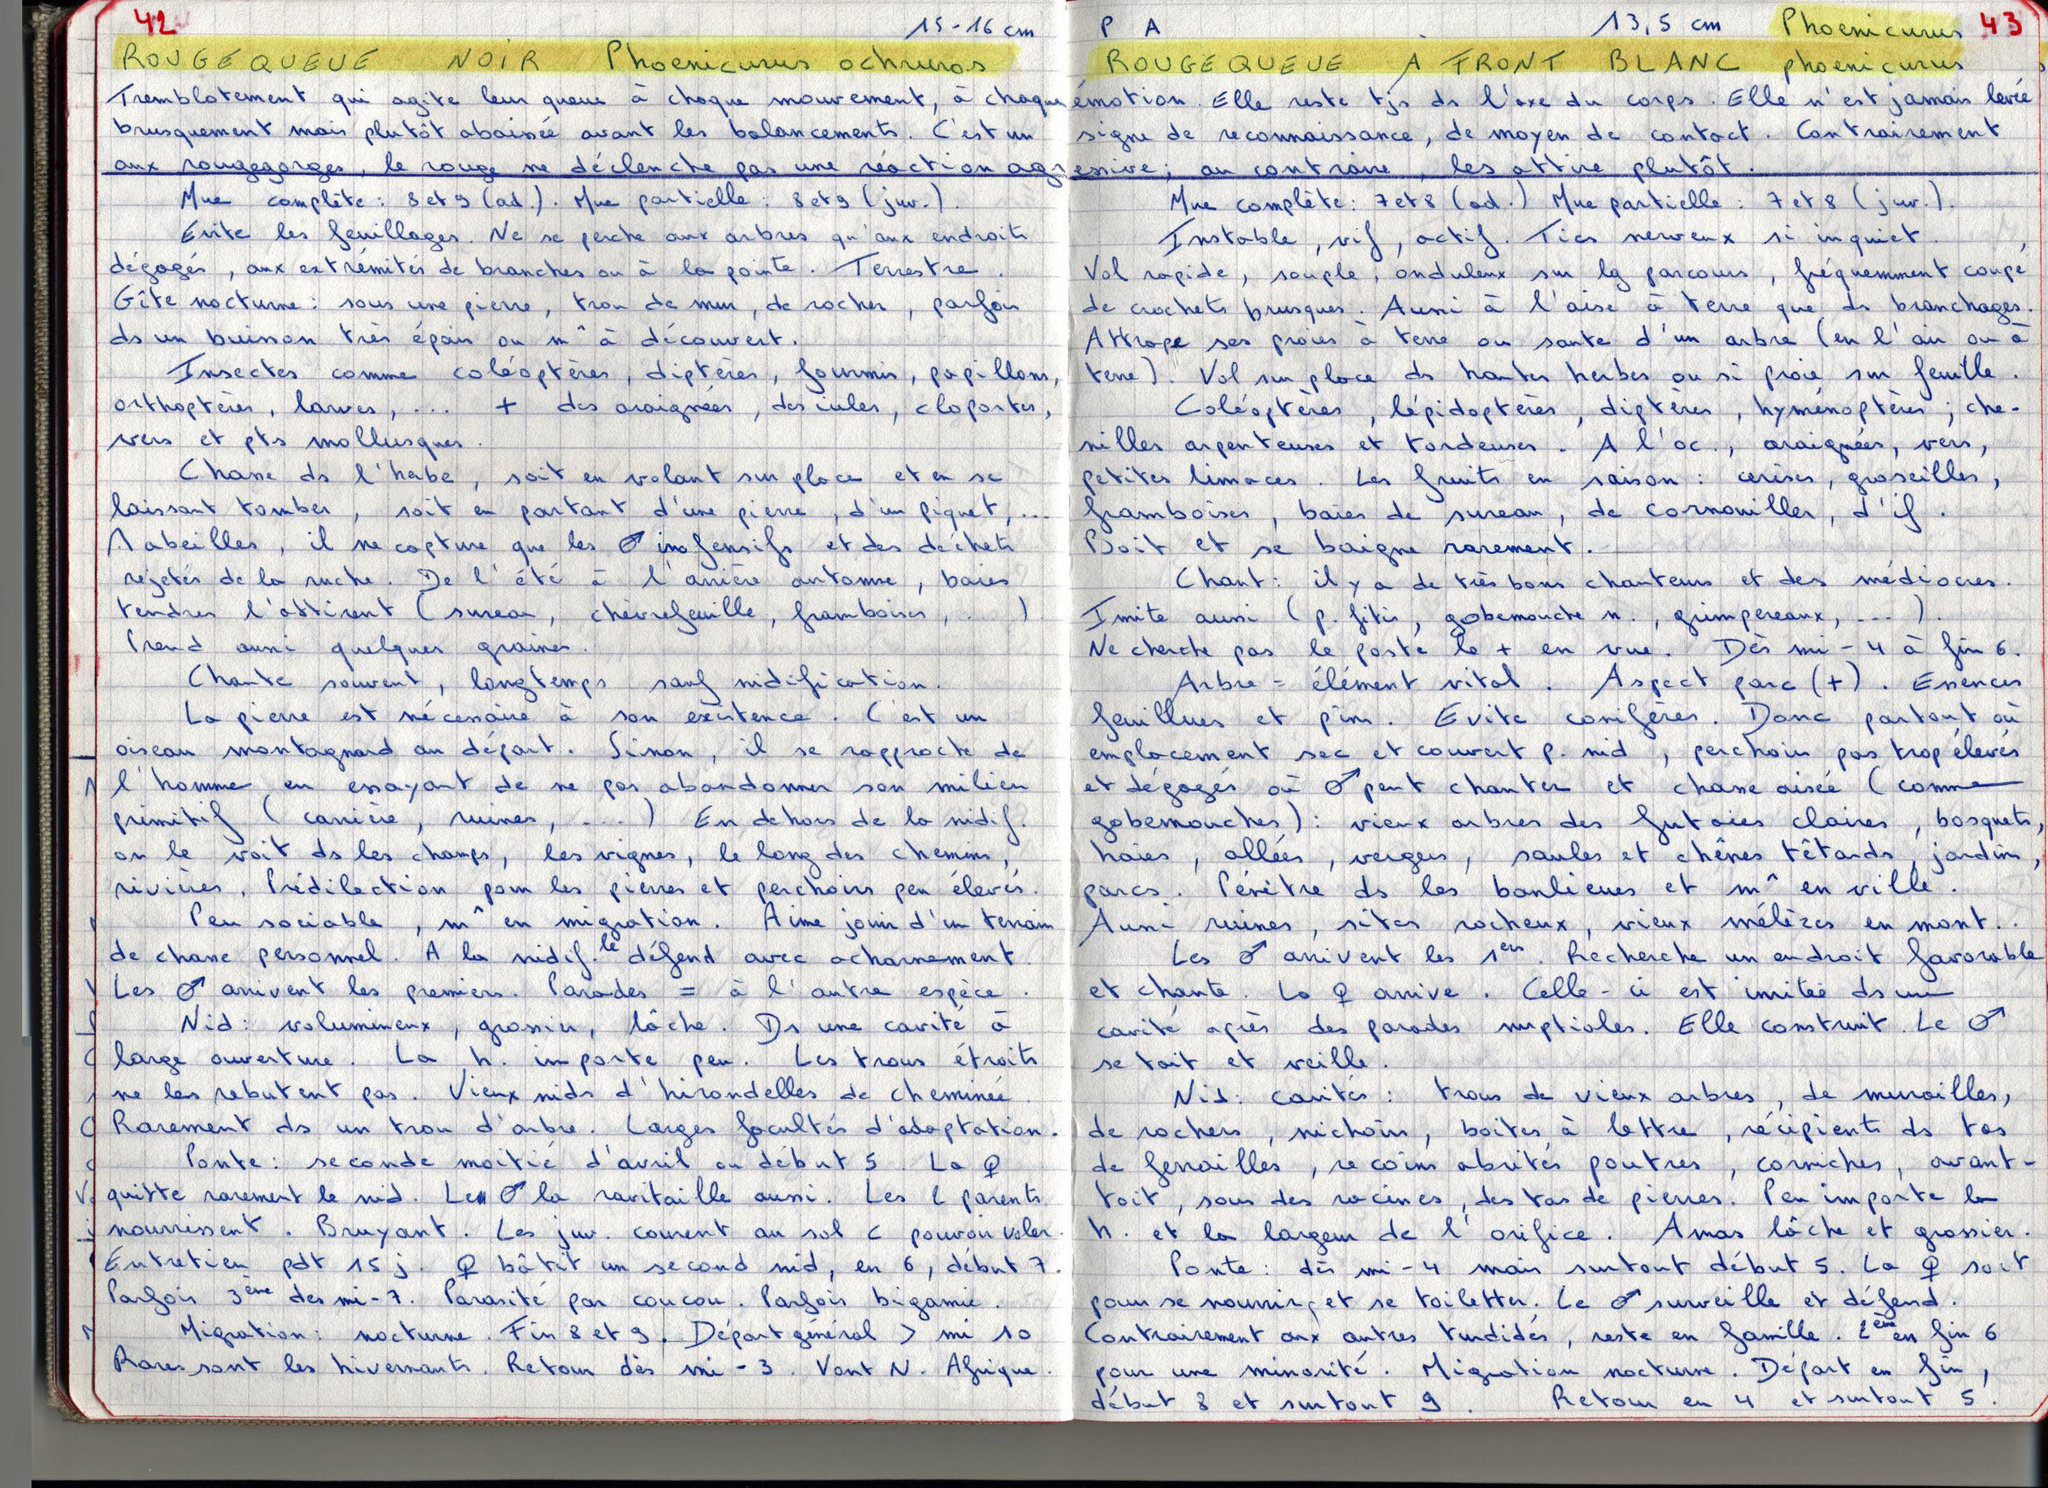 42
15-16 cm
ROUGEQUEUE NOIR Phoenicurus ochruros
Tremblotement qui agite leur queue à chaque mouvement, à chaque émotion. Elle reste tjs ds l'axe du corps. Elle n'est jamais levée
brusquement mais plutôt abaissée avant les balancements. C'est un signe de reconnaissance, de moyen de contact. Contrairement
aux rougegorges, le rouge ne déclenche pas une réaction agressive; au contraire, les attire plutôt.
Mue complète: 8 et 9 (ad.). Mue partielle: 8 et 9 (juv.).
Evite les feuillages. Ne se perche aux arbres qu'aux endroits
dégagés, aux extrémités de branches ou à la pointe. Terrestre.
Gîte nocturne: sous une pierre, trou de mur, de rocher, parfois
ds un buisson très épais ou m^ à découvert.
Insectes comme coléoptères, diptères, fourmis, papillons,
orthoptères, larves, ... + des araignées, des iules, cloportes,
vers et pts mollusques.
Chasse ds l'herbe, soit en volant sur place et en se
laissant tomber, soit en partant d'une pierre, d'un piquet, ...
A abeilles, il ne capture que les ♂ inofensifs et des déchets
rejetés de la ruche. De l'été à l'arrière automne, baies
tendres l'attirent (sureau, chèvrefeuille, framboises, ...)
Prend aussi quelques graines.
Chante souvent, longtemps sauf nidification.
La pierre est nécessaire à son existence. C'est un
oiseau montagnard au départ. Sinon, il se rapproche de
l'homme en essayant de ne pas abandonner son milieu
primitif (carrière, ruines, ...) En dehors de la nidif.
on le voit ds les champs, les vignes, le long des chemins,
rivières. Prédilection pour les pierres et perchoirs peu élevés.
Peu sociable, m^ en migration. Aime jouir d'un terrain
de chasse personnel. A la nidif. le défend avec acharnement.
Les ♂ arrivent les premiers. Parades = à l'autre espèce.
Nid: volumineux, grossier, lâche. Ds une cavité à
large ouverture. La h. importe peu. Les trous étroits
ne les rebutent pas. Vieux nids d'hirondelles de cheminée.
Rarement ds un trou d'arbre. Larges facultés d'adaptation.
Ponte: seconde moitié d'avril ou début 5. La ♀
quitte rarement le nid. Le ♂ la ravitaille aussi. Les 2 parents
nourrissent. Bruyant. Les juv. courent au sol pouvoir voler.
Entretien pdt 15 j. ♀ bâtit un second nid, en 6, début 7.
Parfois 3ème dès mi-7. Parasité par coucou. Parfois bigamie.
Migration: nocturne. Fin 8 et 9. Départ général > mi 10
Rares sont les hivernants. Retour dès mi-3. Vont N. Afrique.
P A
13,5 cm
Phoenicurus 43
ROUGEQUEUE A FRONT BLANC phoenicurus
Mue complète: 7 et 8 (ad.) Mue partielle: 7 et 8 (juv.).
Instable, vif, actif. Tics nerveux si inquiet.
Vol rapide, souple, onduleux sur lg parcours, fréquemment coupé
de crochets brusques. Aussi à l'aise à terre que ds branchages.
Attrape ses proies à terre ou saute d'un arbre (en l'air ou à
terre). Vol sur place ds hautes herbes ou si proie sur feuille.
Coléoptères, lépidoptères, diptères, hyménoptères; che-
nilles arpenteuses et tordeuses. A l'oc., araignées, vers,
petites limaces. Les fruits en saison: cerises, groseilles,
framboises, baies de sureau, de cornouiller, d'if.
Boit et se baigne rarement.
Chant: il y a de très bons chanteurs et des médiocres.
Imite aussi (p. fitis, gobemouche n., grimpereaux, ...).
Ne cherche pas le poste le + en vue. Dès mi-4 à fin 6.
Arbre = élément vital. Aspect parc (+). Essences
feuillues et pins. Evite conifères. Donc partout où
emplacement sec et couvert p. nid, perchoirs pas trop élevés
et dégagés où ♂ peut chanter et chasse aisée (comme
gobemouches): vieux arbres des futaies claires, bosquets,
haies, allées, vergers, saules et chênes têtards, jardins,
parcs. Pénètre ds les banlieues et m^ en ville.
Aussi ruines, sites rocheux, vieux mélèzes en mont..
Les ♂ arrivent les 1ers. Recherche un endroit favorable
et chante. La ♀ arrive. Celle-ci est invitée ds une
cavité après des parades nuptiales. Elle construit. Le ♂
se tait et veille.
Nid: cavités: trous de vieux arbres, de murailles,
de rochers, nichoirs, boites à lettre, récipients ds tas
de ferrailles, recoins abrités poutres, corniches, avant-
toit, sous des racines, des tas de pierres. Peu importe la
h. et la largeur de l'orifice. Amas lâche et grossier.
Ponte: dès mi-4 mais surtout début 5. La ♀ sort
pour se nourrir, et se toiletter. Le ♂ surveille et défend.
Contrairement aux autres turdidés, reste en famille. 2ème en fin 6
pour une minorité. Migration nocturne. Départ en fin,
début 8 et surtout 9. Retour en 4 et surtout 5.